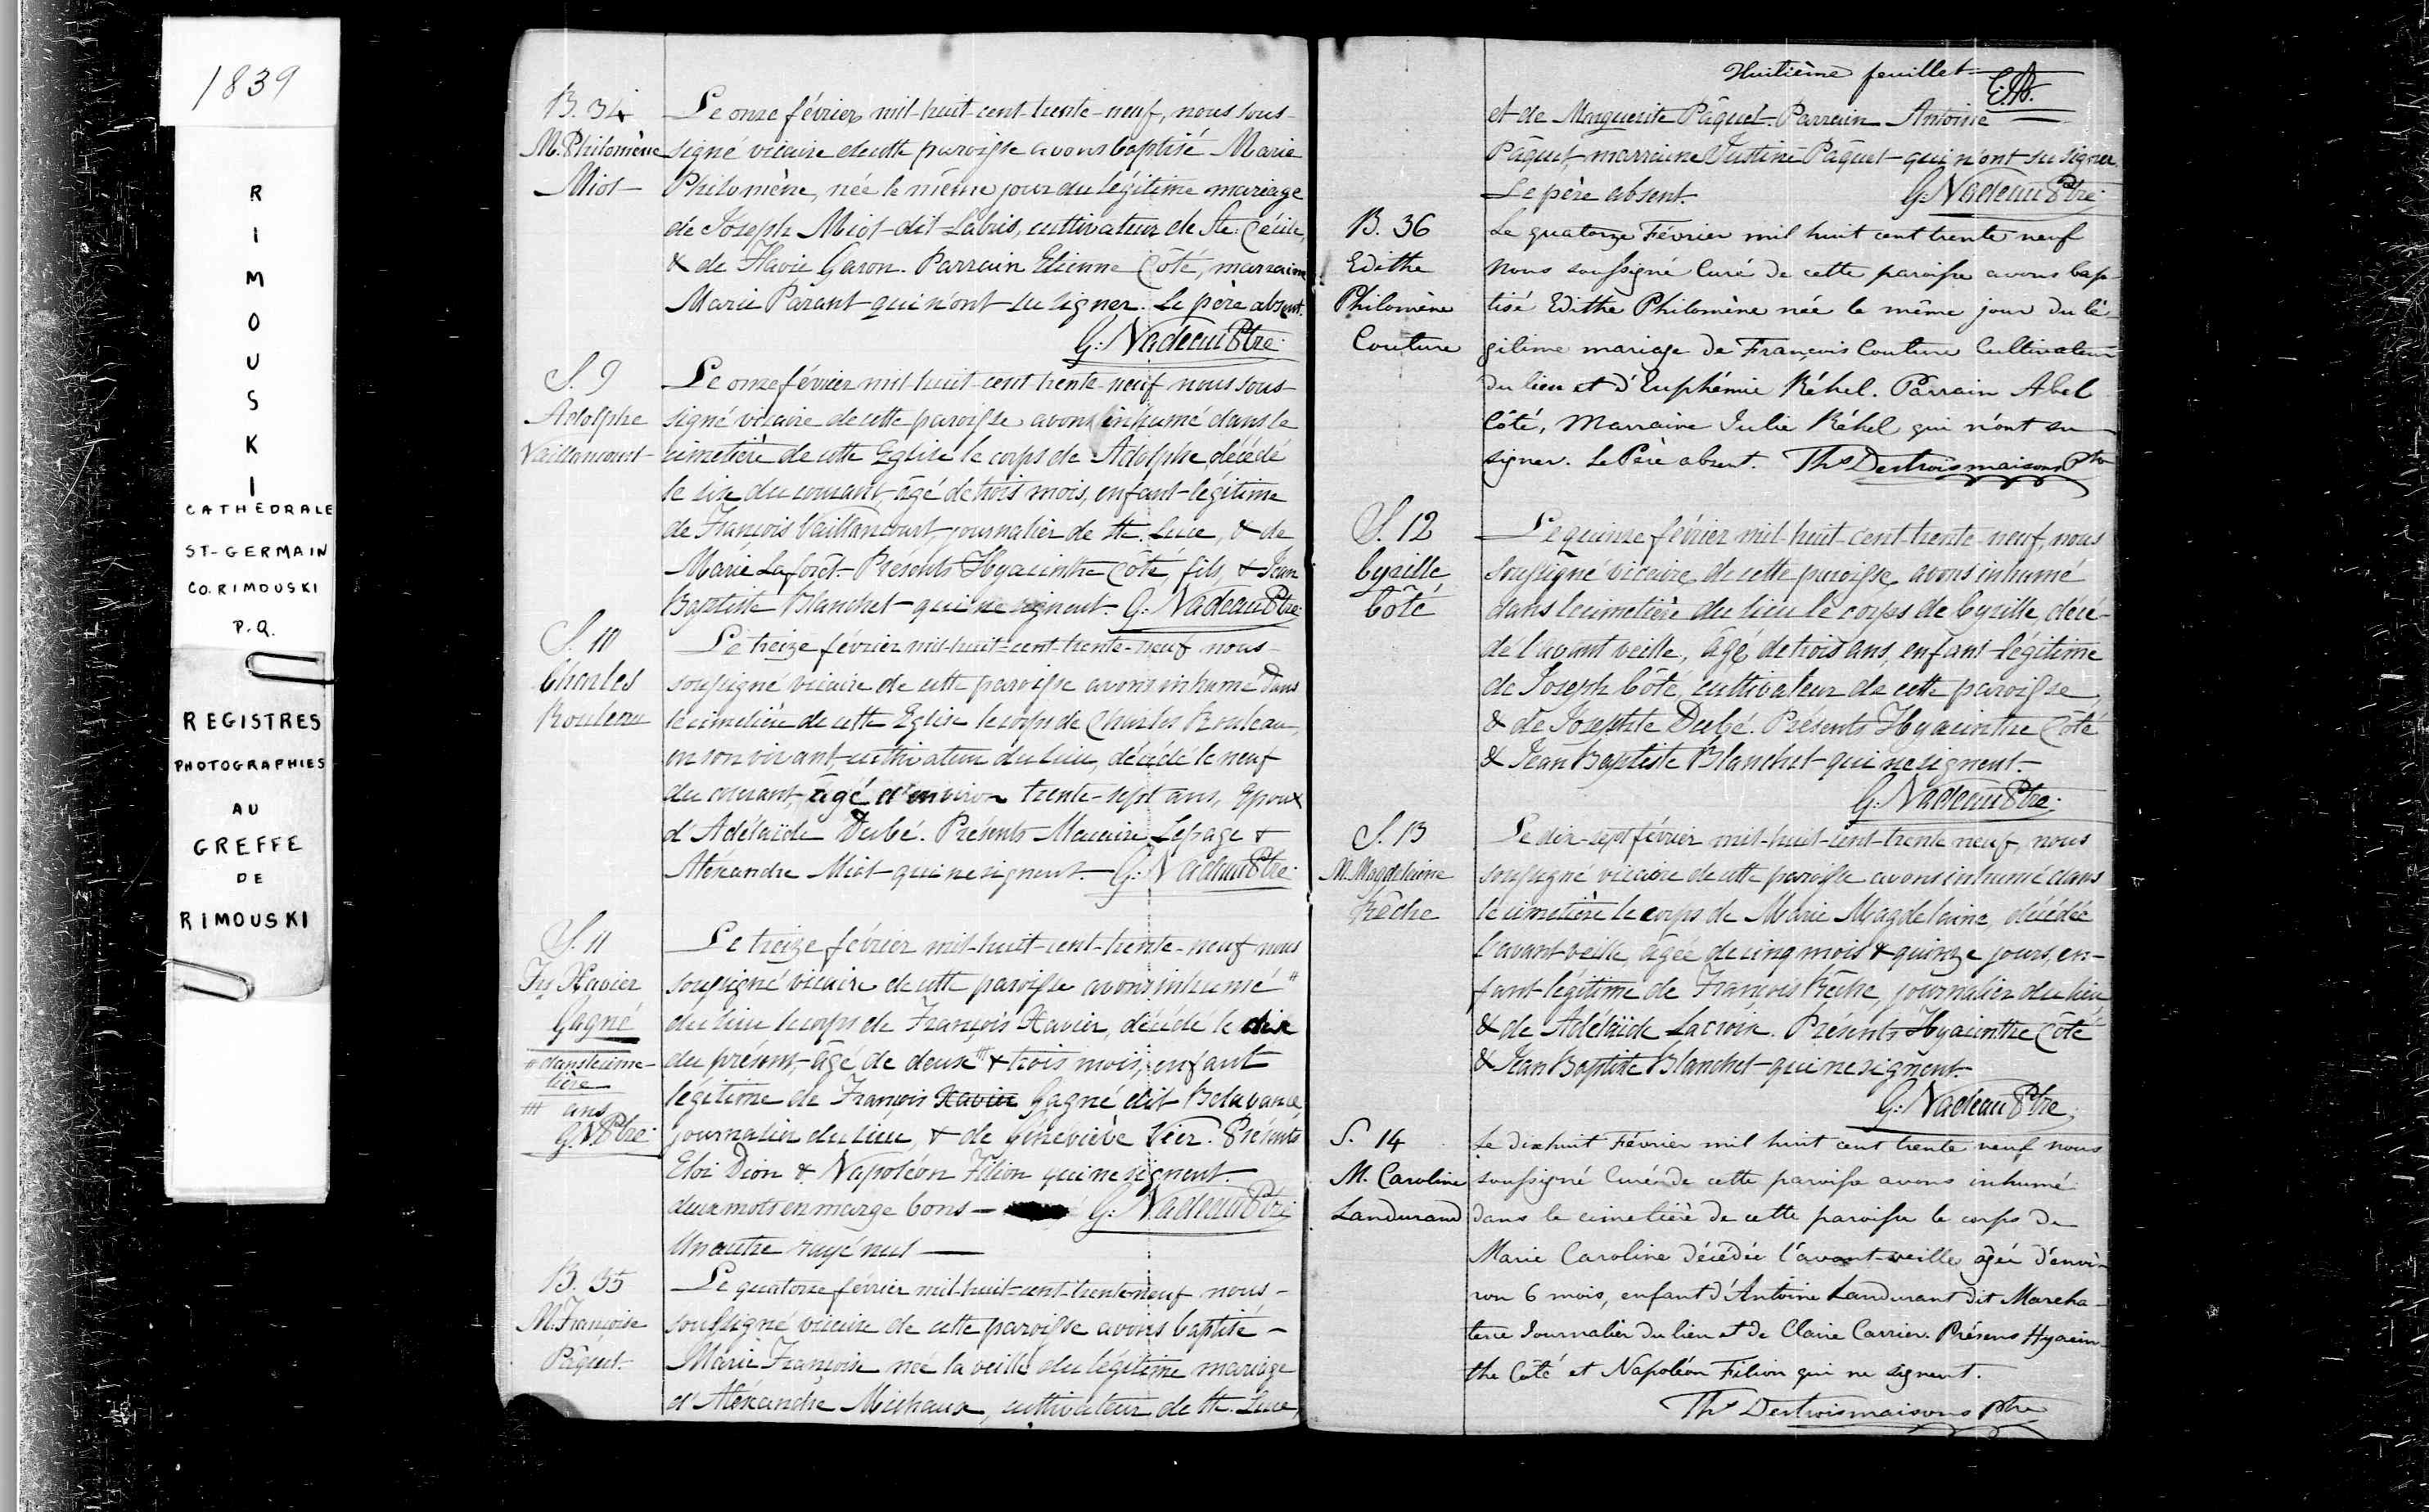 1839
RIMOUSKI
CATHÉDRALE
ST-GERMAIN
CO. RIMOUSKI
P.Q.
REGISTRES
PHOTOGRAPHIES
AU
GREFFE
DE
RIMOUSKI
B. 34
M. Philomène
Miot
Le onze février mil-huit-cent trente-neuf, nous sous-
signé vicaire de cette paroisse avons baptisé Marie
Philomène, née le même jour du légitime mariage
de Joseph Miot dit Labris, cultivateur de Ste. Cécile,
& de Flavie Garon. Parrain Etienne Côté, marraine
Marie Parant qui n'ont su signer. Le père absent.
G. Nadeau Ptre
S. 9
Adolphe
Vaillancourt
Le onze février mil-huit-cent trente-neuf nous sous-
signé vicaire de cette paroisse avons inhumé dans le
cimetière de cette Eglise le corps de Adolphe, décédé
le six du courant, âgé de trois mois, enfant légitime
de François Vaillancourt journalier de Ste. Luce, & de
Marie Laforêt. Présents Hyacinthe Côté, fils, & Jean
Baptiste Blanchet qui ne signent. G. Nadeau Ptre
S. 10
Charles
Rouleau
Le treize février mil-huit-cent-trente-neuf nous
soussigné vicaire de cette paroisse avons inhumé dans
le cimetière de cette Eglise le corps de Charles Rouleau,
en son vivant cultivateur du lieu, décédé le neuf
du courant, âgé d'environ trente-sept ans, Epoux
d'Adélaïde Dubé. Présents Macaire Lepage &
Alexandre Miot qui ne signent. G. Nadeau Ptre
S. 11
Frs Xavier
Gagné
# dans le cime-
tière
### ans
G. N. Ptre
Le treize février mil-huit-cent-trente-neuf nous
soussigné vicaire de cette paroisse avons inhumé #
du lieu le corps de François Xavier, décédé le dix
du présent, âgé de deux ### & trois mois, enfant
légitime de François Xavier Gagné dit Belavance,
journalier du lieu, & de Geneviève Vier. Présents
Eloi Dion & Napoléon Filion qui ne signent.
deux mots en marge bons — G. Nadeau Ptre
Un autre rayé nul —
B. 35
M. Françoise
Pâquet
Le quatorze février mil-huit-cent-trente-neuf nous
soussigné vicaire de cette paroisse avons baptisé
Marie Françoise née la veille du légitime mariage
d'Alexandre Michaux, cultivateur de Ste. Luce,
Huitième feuillet
et de Marguerite Pâquet. Parrain Antoine
Pâquet, marraine Justine Pâquet qui n'ont su signer.
Le père absent. G. Nadeau Ptre
B. 36
Edithe
Philomène
Couture
Le quatorze Février mil huit cent trente neuf
Nous soussigné Curé de cette paroisse avons bap-
tisé Edithe Philomène née le même jour du lé-
gitime mariage de François Couture Cultivateur
du lieu et d'Euphémie Réhel. Parrain Abel
Côté, Marraine Julie Réhel qui n'ont su
signer. Le Père absent. Ths Destroismaisons Ptre
S. 12
Cyrille
Côté
Le quinze février mil-huit-cent-trente-neuf, nous
soussigné vicaire de cette paroisse avons inhumé
dans le cimetière du lieu le corps de Cyrille, décé-
dé l'avant veille, âgé de trois ans, enfant légitime
de Joseph Côté, cultivateur de cette paroisse,
& de Josephte Dubé. Présents Hyacinthe Côté
& Jean Baptiste Blanchet qui ne signent.
G. Nadeau Ptre
S. 13
M. Magdelaine
Rêche
Le dix-sept février mil-huit-cent-trente neuf, nous
soussigné vicaire de cette paroisse avons inhumé dans
le cimetière le corps de Marie Magdelaine, décédée
l'avant-veille, âgée de cinq mois & quinze jours, en-
fant légitime de François Rêche, journalier du lieu
& de Adélaïde Lacroix. Présents Hyacinthe Côté
& Jean Baptiste Blanchet qui ne signent.
G. Nadeau Ptre
S. 14
M. Caroline
Landurand
Le dixhuit Février mil huit cent trente neuf nous
soussigné Curé de cette paroisse avons inhumé
dans le cimetière de cette paroisse le corps de
Marie Caroline décédée l'avant-veille agée d'envi-
ron 6 mois, enfant d'Antoine Landurant dit Marcha-
terre Journalier du lieu et de Claire Carrier. Présens Hyacin-
the Côté et Napoléon Filion qui ne signent.
Ths Destroismaisons ptre